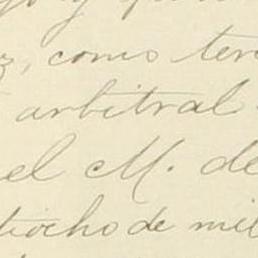 z, como ter
arbitral
el M. de
tiocho de mil